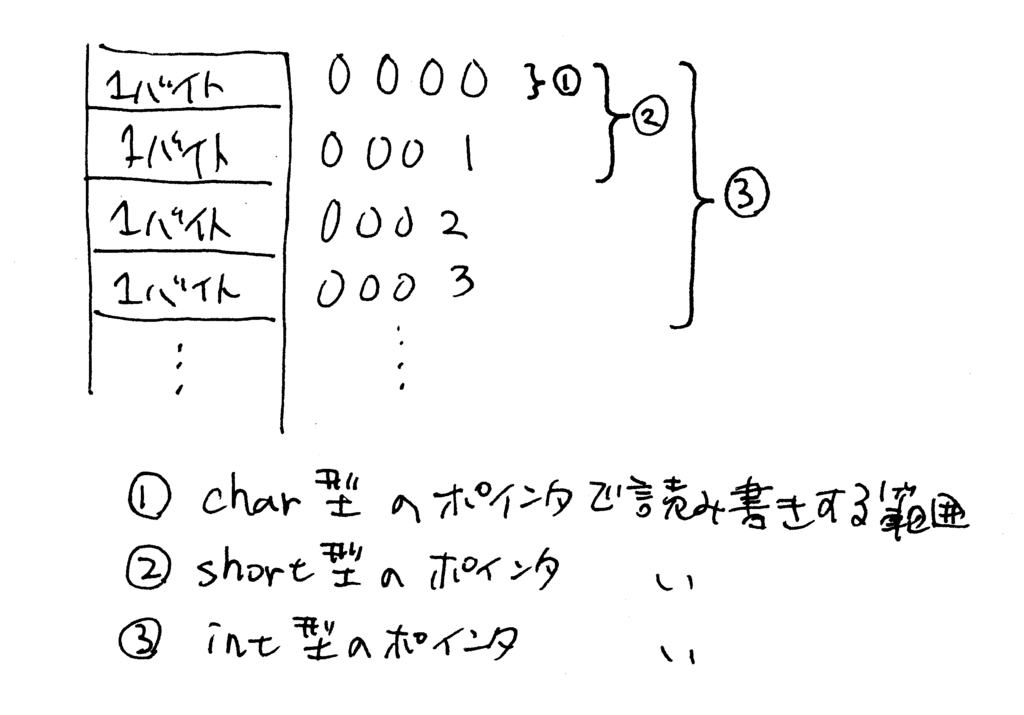 1バイト 0000 } ①
1バイト 0001 } ②
1バイト 0002 } ③
1バイト 0003
⋮ ⋮
① char型のポインタで読み書きする範囲
② short型のポインタ 〃
③ int型のポインタ 〃